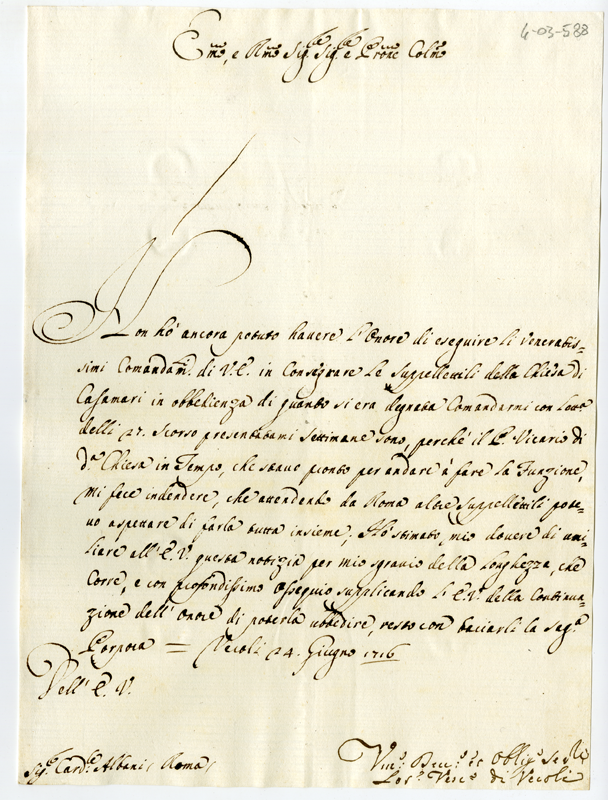 4-03-588
Em.mo, e R.mo Sig.re Sig.re e P.rone Col.mo
Non hò ancora potuto havere l'Onore di eseguire li Venerabis=
simi Comandam.ti di V.E. in Consegnare le suppellettili della Chiesa di
Casamari in obbedienza di quanto si era degnata Comandarmi con
delli 27. scorso presentatami settimane sono, perche il P. Vicario di
d.a Chiesa in Tempo, che stavo pronto per andare à fare la Funzione,
mi fece intendere, che attendendo da Roma altre suppellettili pote=
vo aspettare di farla tutta insieme; Hò stimato mio dovere di umi=
liare all'E.V. questa notizia per mio sgravio della longhezza, che
Corre, e con profondissimo Ossequio supplicando l'E.V. della Continua=
zione dell'Onore di poterla ubbedire, resto con baciarli la Sag.a
Porpora = Veroli 24. Giugno 1716
Dell'E.V.
Sig.r Card.e Albani, Roma,
Obblig.o Se.re
Lor.o Vesc.o di Veroli